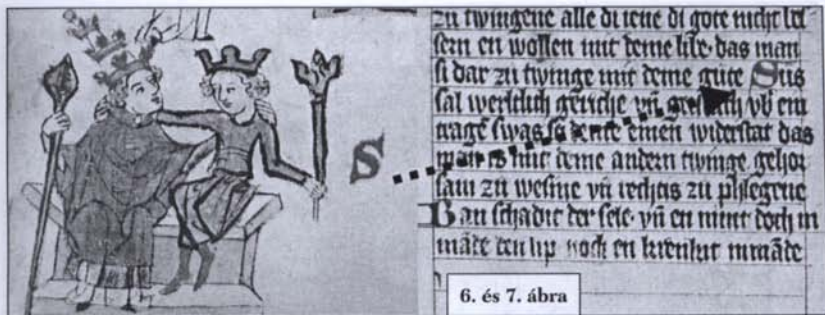 S
zu twingene alle di iene di gote nicht beſ
ſern en wollen mit deme libe· das man
ſi dar zu twinge mit deme gute Sus
ſal werltlich gerichte vn̄ vb ein
trage ſwas ſo deme einen widerſtat das
man is mit deme andern twinge gehor
ſam zu weſene vn̄ rechtis zu phlegene
Ban ſchadit der ſele· vn̄ en nimt doch in
māde den lip noch en krenkit nimāde
6. és 7. ábra